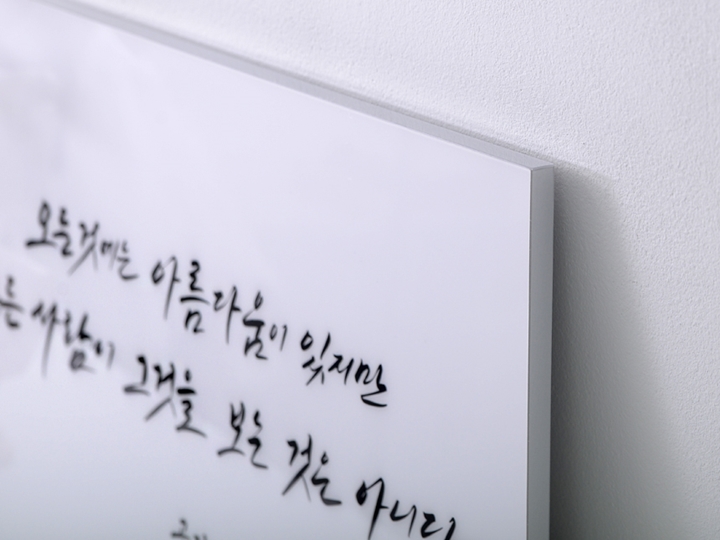 오든것에는 아름다움이 있지만
든 사람이 그것을 보는 것은 아니다